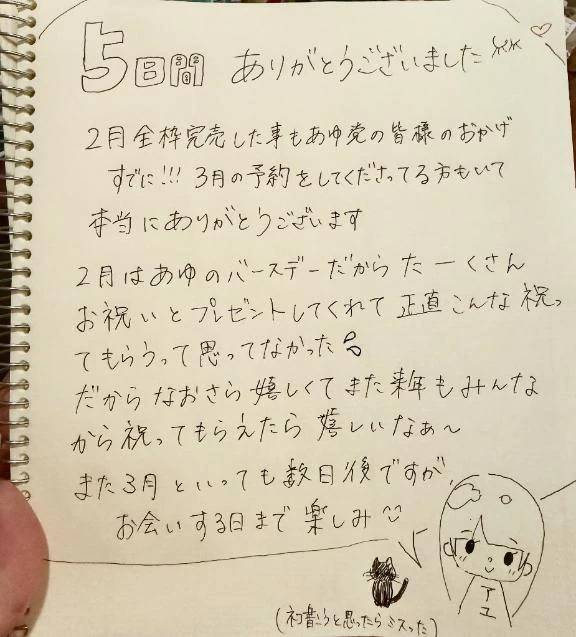 5日間 ありがとうございました
2月全枠完売した事もあゆ党の皆様のおかげ
すでに!!! 3月の予約をしてくださってる方もいて
本当にありがとうございます
2月はあゆのバースデーだからたーくさん
お祝いとプレゼントしてくれて正直こんな祝っ
てもらうって思ってなかった
だからなおさら嬉しくてまた来年もみんな
から祝ってもらえたら嬉しいなぁ〜
また3月といっても数日後ですが、
お会いする日まで楽しみ
アユ
と思ったらミスった)